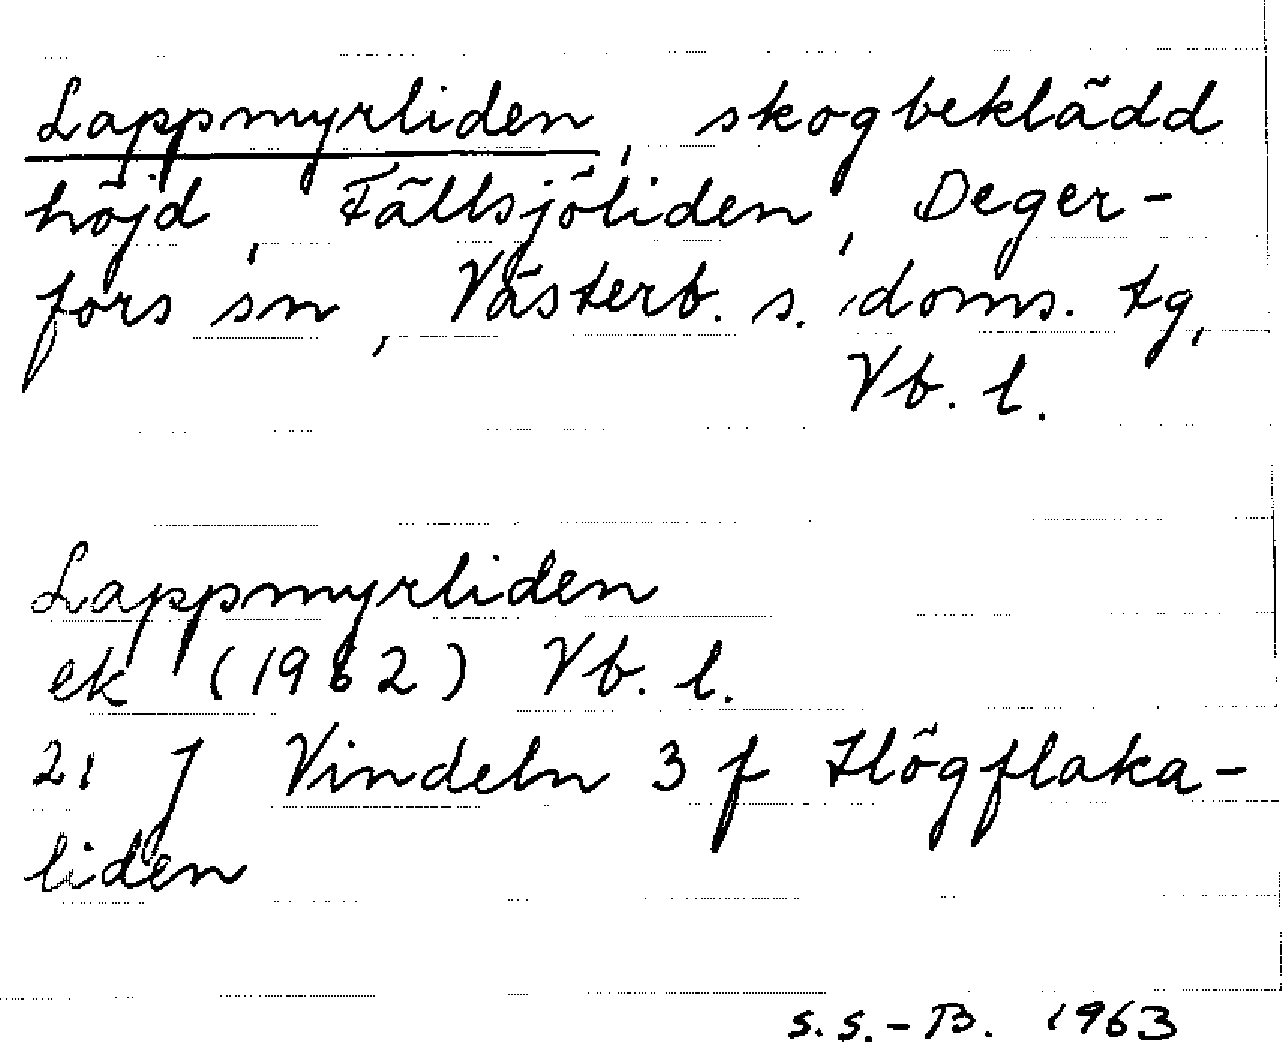 Lappmyrliden, skogbeklädd
höjd, Fällsjöliden, Deger-
fors sn, Västerb. s. doms. tg,
Vb. l.
Lappmyrliden
ek (1962) Vb. l.
21 J Vindeln 3 f Högflaka-
liden
S.S.-B. 1963